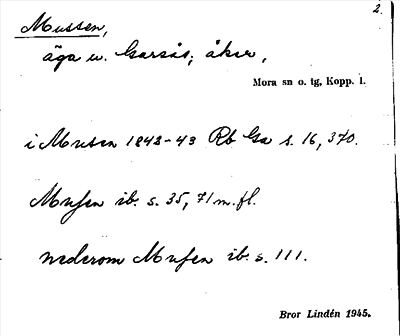 2.
Mussen,
äga u. Garsås; åker,
Mora sn o. tg, Kopp. l.
i Musen 1842-43 Rb Ga s. 16, 370.
Musen ib. s. 35, 71 m. fl.
nederom Musen ib. s. 111.
Bror Lindén 1945.